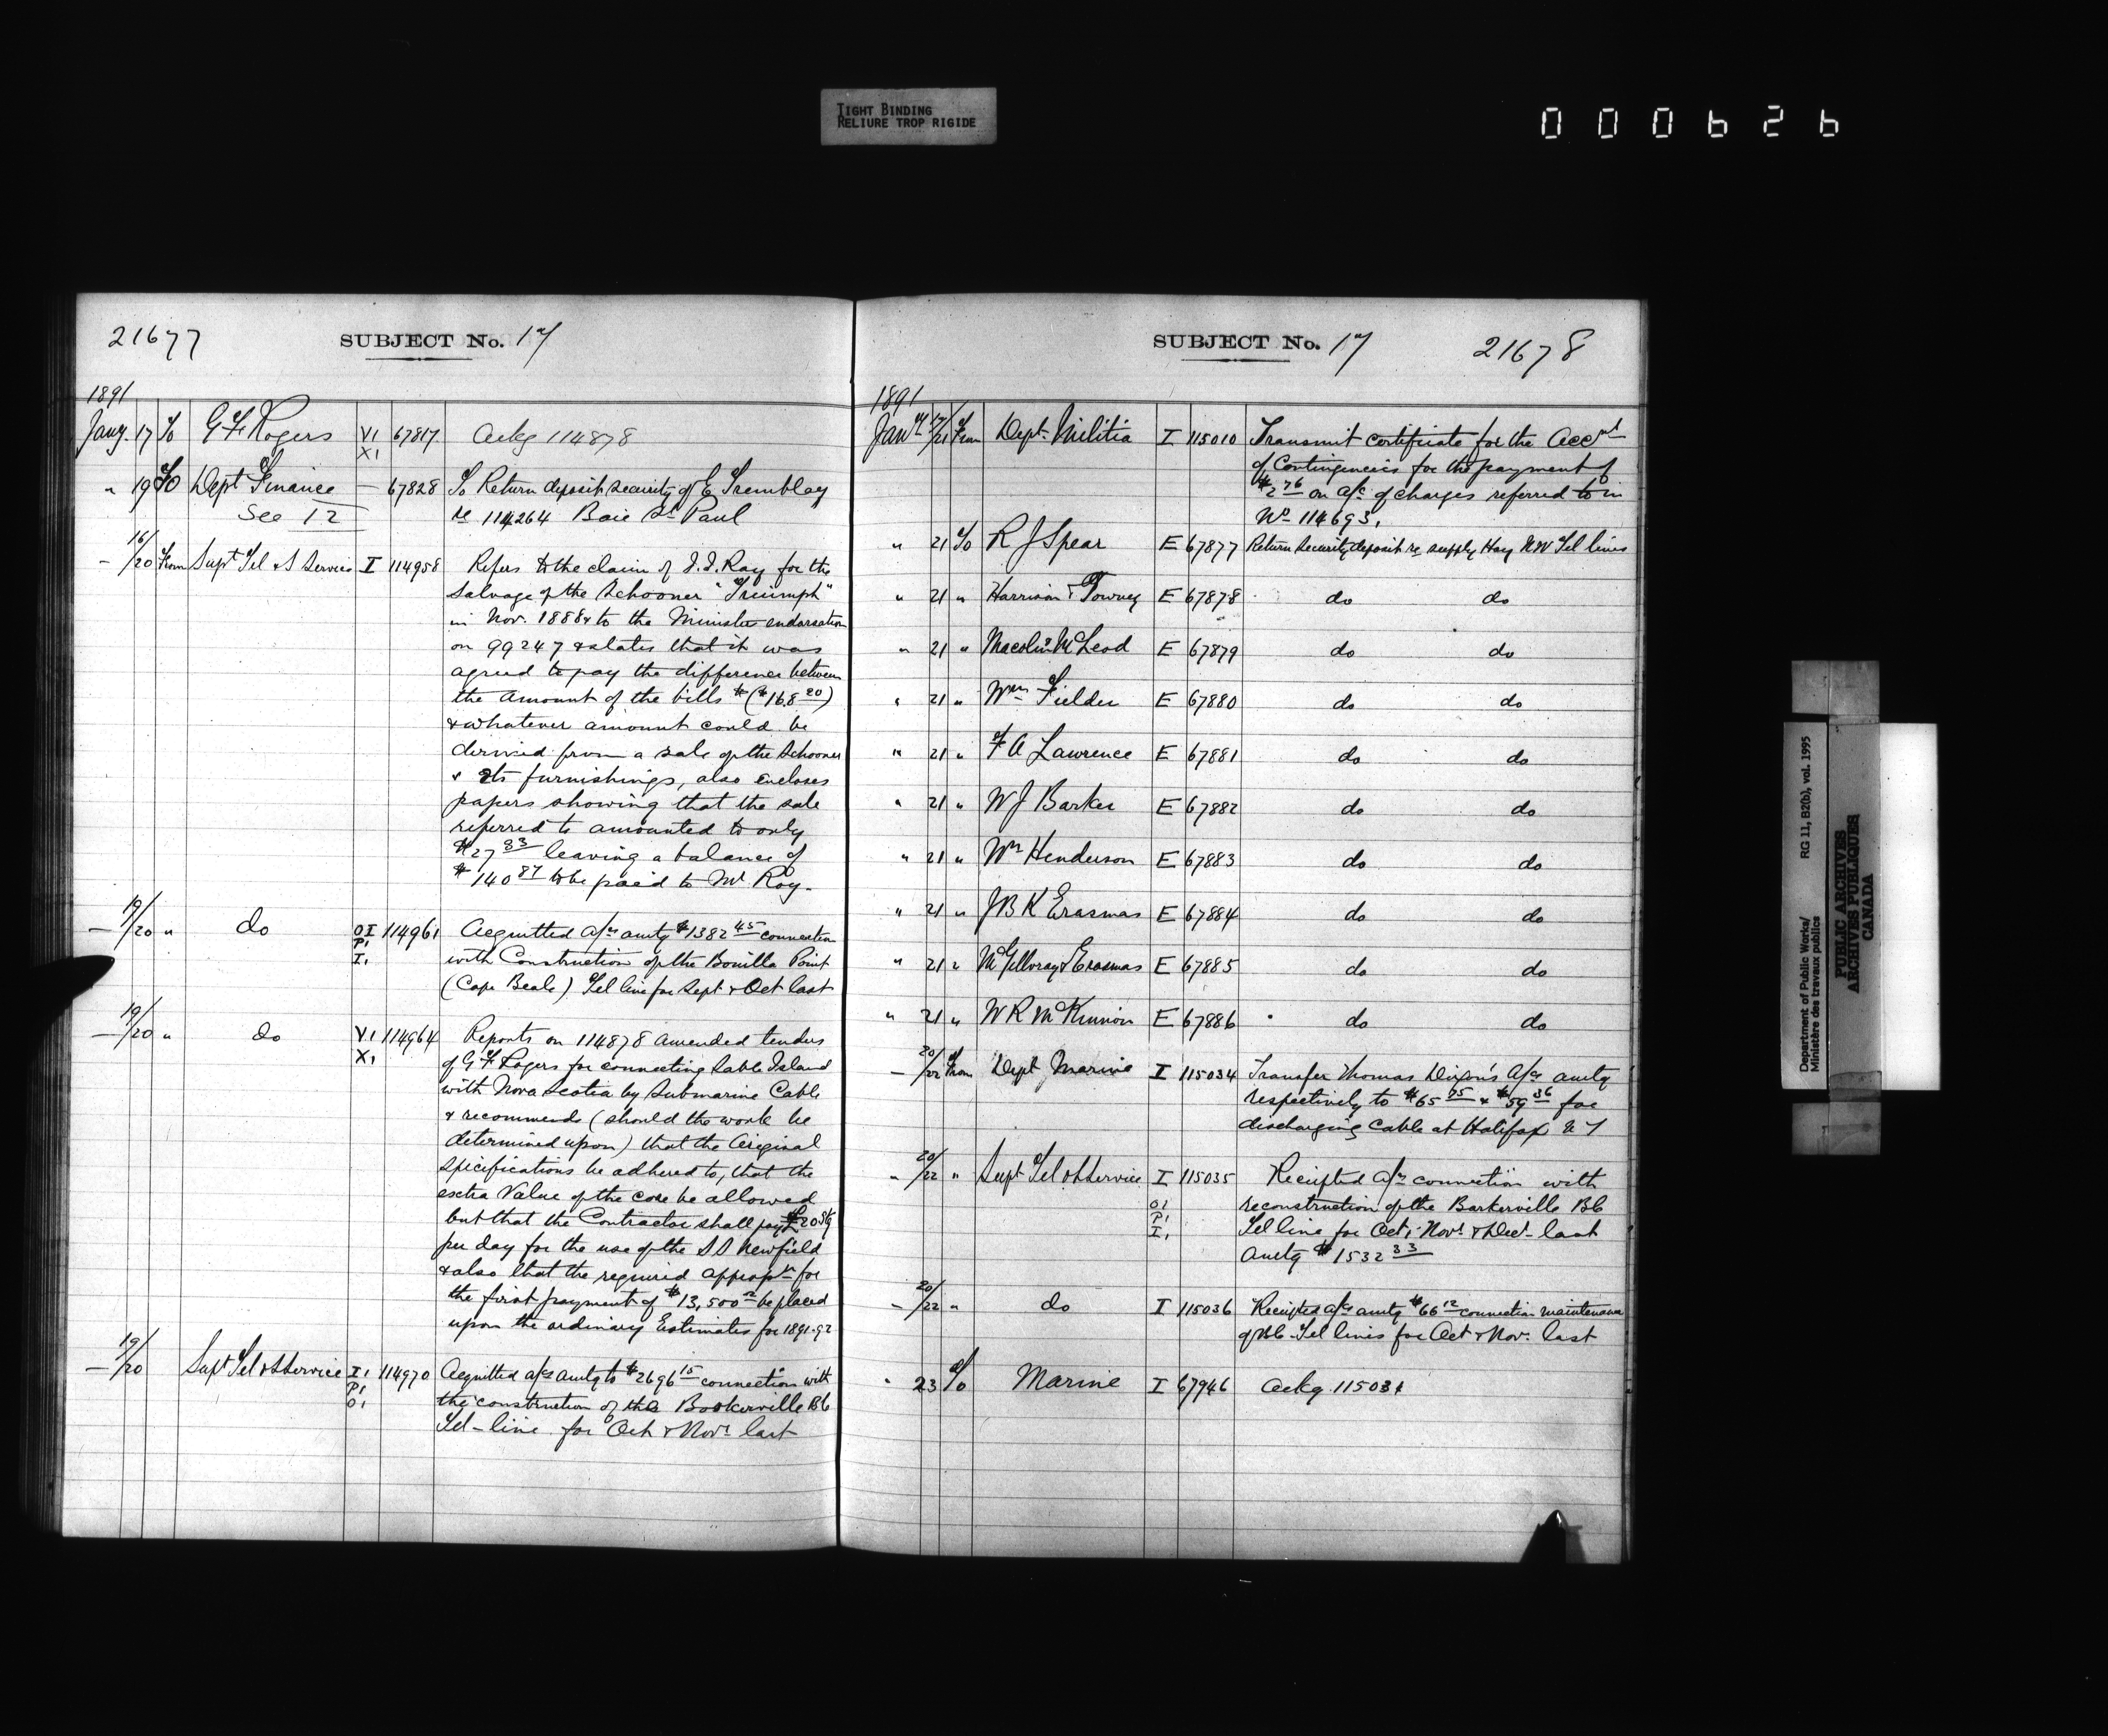 TIGHT BINDING
RELIURE TROP RIGIDE
000626
21677
SUBJECT No. 17
1891
Jany. 17 To G F Rogers VI XI 67817 Ackg 114878
" 19 To Dept Finance — 67828 To Return deposit security of E Tremblay
See 12 re 114264 Baie St Paul
— 16/20 From Supt Tel & S Service I 114958 Refers to the claim of J.I. Roy for the
salvage of the Schooner "Triumph"
in Nov. 1888 & to the Minister endorsation
on 99247 & states that it was
agreed to pay the difference between
the amount of the bills $ ($168 20)
& whatever amount could be
derived from a sale of the Schooner
& its furnishings, also encloses
papers showing that the sale
referred to amounted to only
$27 33 leaving a balance of
$140 87 to be paid to Mr Roy.
— 19/20 " do OI P1 I1 114961 Acquitted a/cs amtg $1382 45 connection
with Construction of the Bonilla Point
(Cape Beale) Tel line for Sept & Oct last
— 19/20 " do VI XI 114964 Reports on 114878 amended tenders
of G F Rogers for connecting Sable Island
with Nova Scotia by Submarine Cable
& recommends (should the work be
determined upon) that the Original
specifications be adhered to, that the
extra Value of the core be allowed
but that the Contractor shall pay £20 Stg
per day for the use of the SS Newfield
& also that the required appropn for
the first payment of $13,500 be placed
upon the ordinary Estimates for 1891-92
— 19/20 Supt Tel & S Service I1 P1 O1 114970 Acquitted a/cs amtg to $2696 15 connection with
the construction of the Bookerville BC
Tel-line for Oct & Novr last
SUBJECT No. 17
21678
1891
Jany 17/21 From Dept. Militia I 115010 Transmit certificate for the Acct
of Contingencies for the payment of
$2 76 on a/c of charges referred to in
No 114693.
" 21 To R J Spear E 67877 Return Security deposit re supply Hay NW Tel lines
" 21 " Harrison & Towney E 67878 do do
" 21 " Macolim McLeod E 67879 do do
" 21 " Wm Fielder E 67880 do do
" 21 " F A Lawrence E 67881 do do
" 21 " W J Barker E 67882 do do
" 21 " Wm Henderson E 67883 do do
" 21 " J B K Erasmas E 67884 do do
" 21 " McGilloray & Erasmas E 67885 do do
" 21 " W R McKinnon E 67886 do do
— 20/22 From Dept Marine I 115034 Transfer Thomas Dixon's a/cs amtg
respectively to $65 75 & $59 36 for
discharging Cable at Halifax N S
" 20/22 " Supt Tel & S Service I 115035 Receipted a/cs connection with
O1 reconstruction of the Barkerville BC
P1 I1 Tel line for Oct, Novr & Decr last
amtg $1532 33
— 20/22 " do I 115036 Receipted a/cs amtg $66 12 connection maintenance
of BC Tel lines for Oct & Nov. last
" 23 To Marine I 67946 Ackg 115034
Department of Public Works/
Ministère des travaux publics
RG 11, B2(b), vol. 1995
PUBLIC ARCHIVES
ARCHIVES PUBLIQUES
CANADA